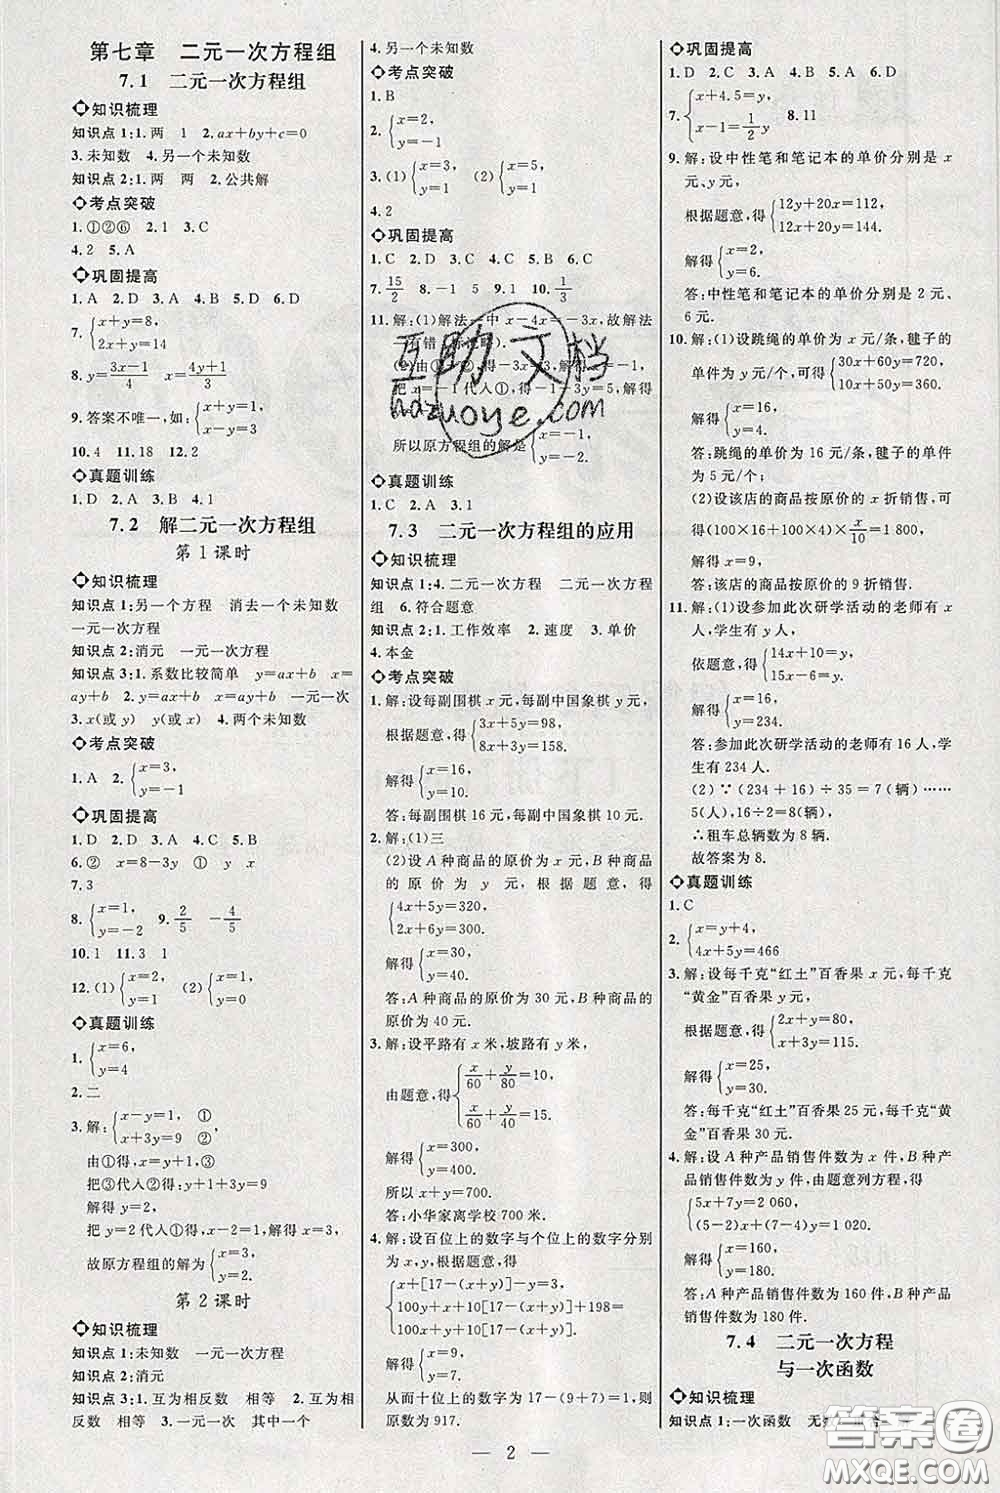 第七章 二元一次方程组
7.1 二元一次方程组
知识梳理
知识点1:1.两 1 2.ax+by+c=0
3.未知数 4.另一个未知数
知识点2:1.两 两 2.公共解
考点突破
1.①②⑥ 2.1 3.C
4.2 5.A
巩固提高
1.A 2.D 3.A 4.B 5.D 6.D
7.{x+y=8,
2x+y=14
8.y=(3x-1)/4 x=(4y+1)/3
9.答案不唯一,如:{x+y=1,
x-y=3
10.4 11.18 12.2
真题训练
1.D 2.A 3.B 4.1
7.2 解二元一次方程组
第1课时
知识梳理
知识点1:另一个方程 消去一个未知数
一元一次方程
知识点2:消元 一元一次方程
知识点3:1.系数比较简单 y=ax+b x=
ay+b 2.y=ax+b x=ay+b 一元一次
3.x(或y) y(或x) 4.两个未知数
考点突破
1.A 2.{x=3,
y=-1
巩固提高
1.D 2.D 3.B 4.C 5.B
6.② x=8-3y ① y x
7.3
8.{x=1,
y=-2 9.2/5 -4/5
10.1 11.3 1
12.(1){x=2,
y=1 (2){x=1,
y=0
真题训练
1.{x=6,
y=4
2.二
3.解:{x-y=1, ①
x+3y=9 ②
由①得,x=y+1,③
把③代入②得:y+1+3y=9
解得y=2
把y=2代入①得,x-2=1,解得x=3.
故原方程组的解为{x=3,
y=2.
第2课时
知识梳理
知识点1:未知数 一元一次方程
知识点2:消元
知识点3:1.互为相反数 相等 2.互为相
反数 相等 3.一元一次 其中一个
4.另一个未知数
考点突破
1.B
2.{x=2,
y=-1
3.(1){x=3,
y=1 (2){x=5,
y=1
4.2
巩固提高
1.C 2.D 3.C 4.D 5.B 6.B
7.15/2 8.-1 5 9.1 10.1/3
11.解:(1)解法一中
x-4x=-3x,故解法
-1-3y=2,解得
所以原方程组的解是{x=-1,
y=-1.
真题训练
1.C 2.A 3.A 4.1
7.3 二元一次方程组的应用
知识梳理
知识点1:4.二元一次方程 二元一次方程
组 6.符合题意
知识点2:1.工作效率 2.速度 3.单价
4.本金
考点突破
1.解:设每副围棋x元,每副中国象棋y元,
根据题意,得{3x+5y=98,
8x+3y=158.
解得{x=16,
y=10.
答:每副围棋16元,每副中国象棋10元.
2.解:(1)三
(2)设A种商品的原价为x元,B种商品
的原价为y元,根据题意,得
{4x+5y=320,
2x+6y=300.
解得{x=30,
y=40.
答:A种商品的原价为30元,B种商品的
原价为40元.
3.解:设平路有x米,坡路有y米,
由题意,得{x/60+y/80=10,
x/60+y/40=15.
解得{x=300,
y=400.
所以x+y=700.
答:小华家离学校700米.
4.解:设百位上的数字与个位上的数字分别
为x、y,根据题意,得
{x+[17-(x+y)]-y=3,
100y+x+10[17-(x+y)]+198=
100x+y+10[17-(x+y)].
解得{x=9,
y=7.
从而十位上的数字为17-(9+7)=1,则
原数为917.
巩固提高
1.D 2.C 3.A 4.B 5.A 6.D
7.{x+4.5=y,
x-1=1/2 y 8.11
9.解:设中性笔和笔记本的单价分别是x
元、y元,
根据题意,得{12y+20x=112,
12x+20y=144.
解得{x=2,
y=6.
答:中性笔和笔记本的单价分别是2元、
6元.
10.解:(1)设跳绳的单价为x元/条,毽子的
单件为y元/个,可得{30x+60y=720,
10x+50y=360.
解得{x=16,
y=4.
答:跳绳的单价为16元/条,毽子的单件
为5元/个;
(2)设该店的商品按原价的x折销售,可
得(100×16+100×4)×x/10=1 800,
解得x=9.
答:该店的商品按原价的9折销售.
11.解:(1)设参加此次研学活动的老师有x
人,学生有y人,
依题意,得{14x+10=y,
15x-6=y.
解得{x=16,
y=234.
答:参加此次研学活动的老师有16人,学
生有234人.
(2)∵(234+16)÷35=7(辆)……
5(人),16÷2=8(辆),
∴租车总辆数为8辆.
故答案为8.
真题训练
1.C
2.{x=y+4,
4x+5y=466
3.解:设每千克“红土”百香果x元,每千克
“黄金”百香果y元,
根据题意,得{2x+y=80,
x+3y=115.
解得{x=25,
y=30.
答:每千克“红土”百香果25元,每千克“黄
金”百香果30元.
4.解:设A种产品销售件数为x件,B种产
品销售件数为y件,由题意列方程,得
{5x+7y=2 060,
(5-2)x+(7-3)y=1 020.
解得{x=160,
y=180.
答:A种产品销售件数为160件,B种产品
销售件数为180件.
7.4 二元一次方程
与一次函数
知识梳理
知识点1:一次函数
— 2 —
互助文档
hdzuoye.com
答案圈
MXQE.COM